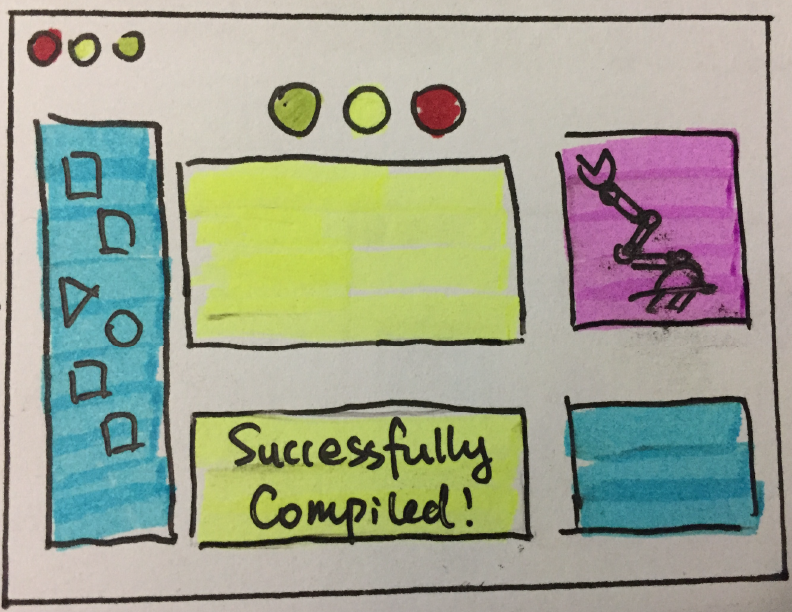 Successfully
Compiled!